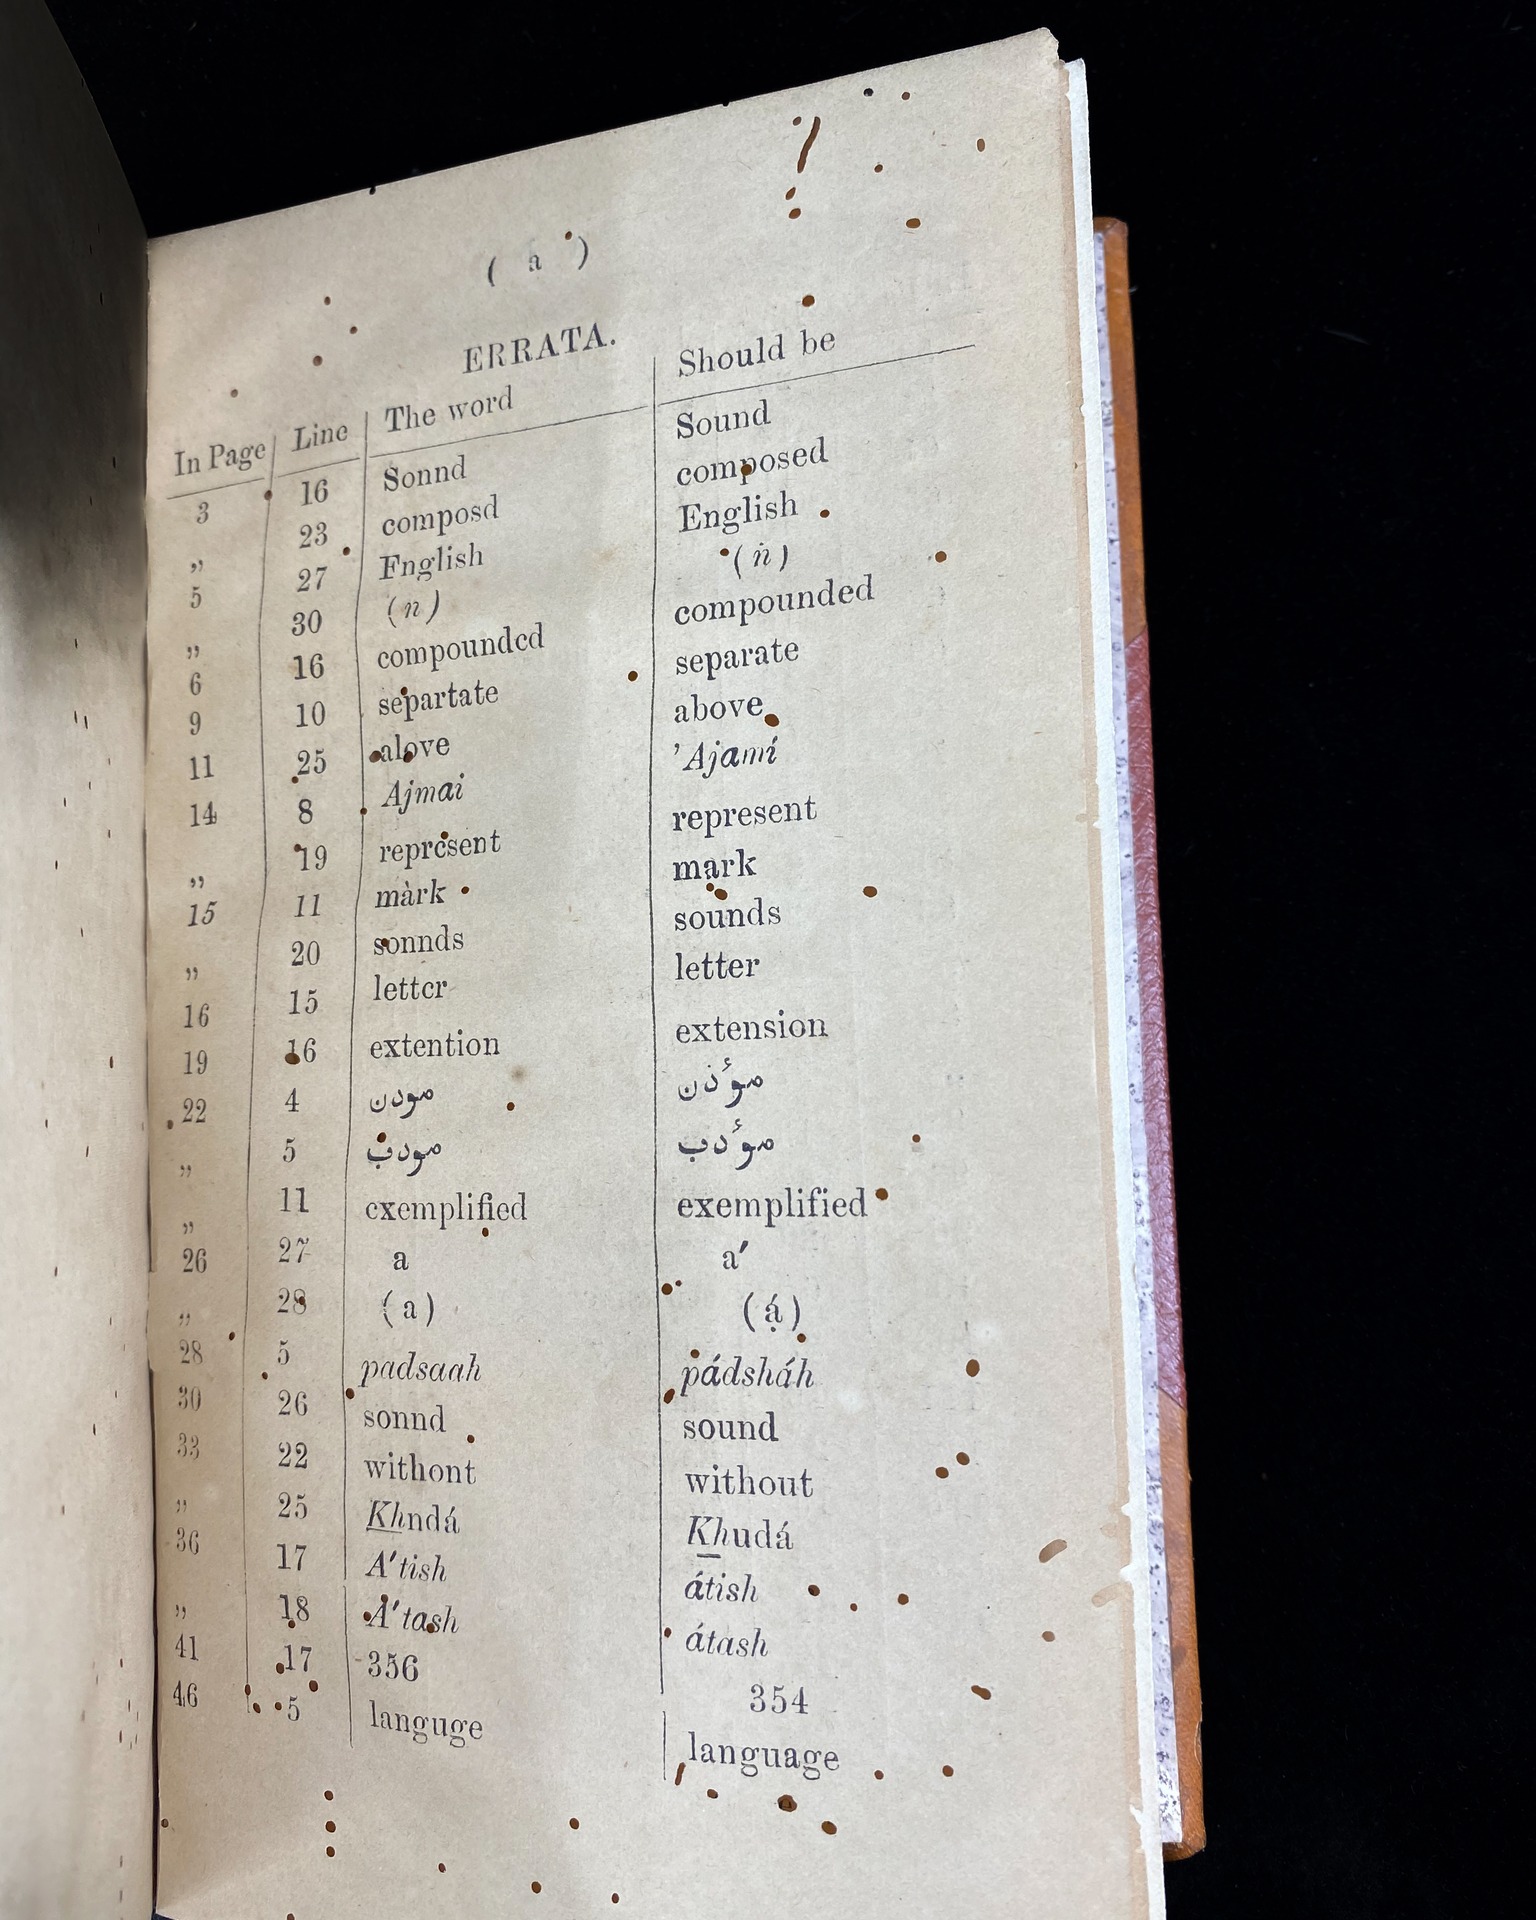 ( a )
ERRATA.
In Page Line The word Should be
3 16 Sonnd Sound
” 23 composd composed
5 27 Fnglish English
” 30 (n) (ṅ)
6 16 compoundcd compounded
9 10 separtate separate
11 25 alove above
14 8 Ajmai ’Ajamí
” 19 reprcsent represent
15 11 màrk mark
” 20 sonnds sounds
16 15 lettcr letter
19 16 extention extension
22 4 مودن موٴذن
” 5 مودب موٴدب
” 11 cxemplified exemplified
26 27 a a′
” 28 (a) (á)
28 5 padsaah pádsháh
30 26 sonnd sound
33 22 withont without
” 25 Khndá Khudá
36 17 A′tish átish
” 18 A′tash átash
41 17 356 354
46 5 languge language